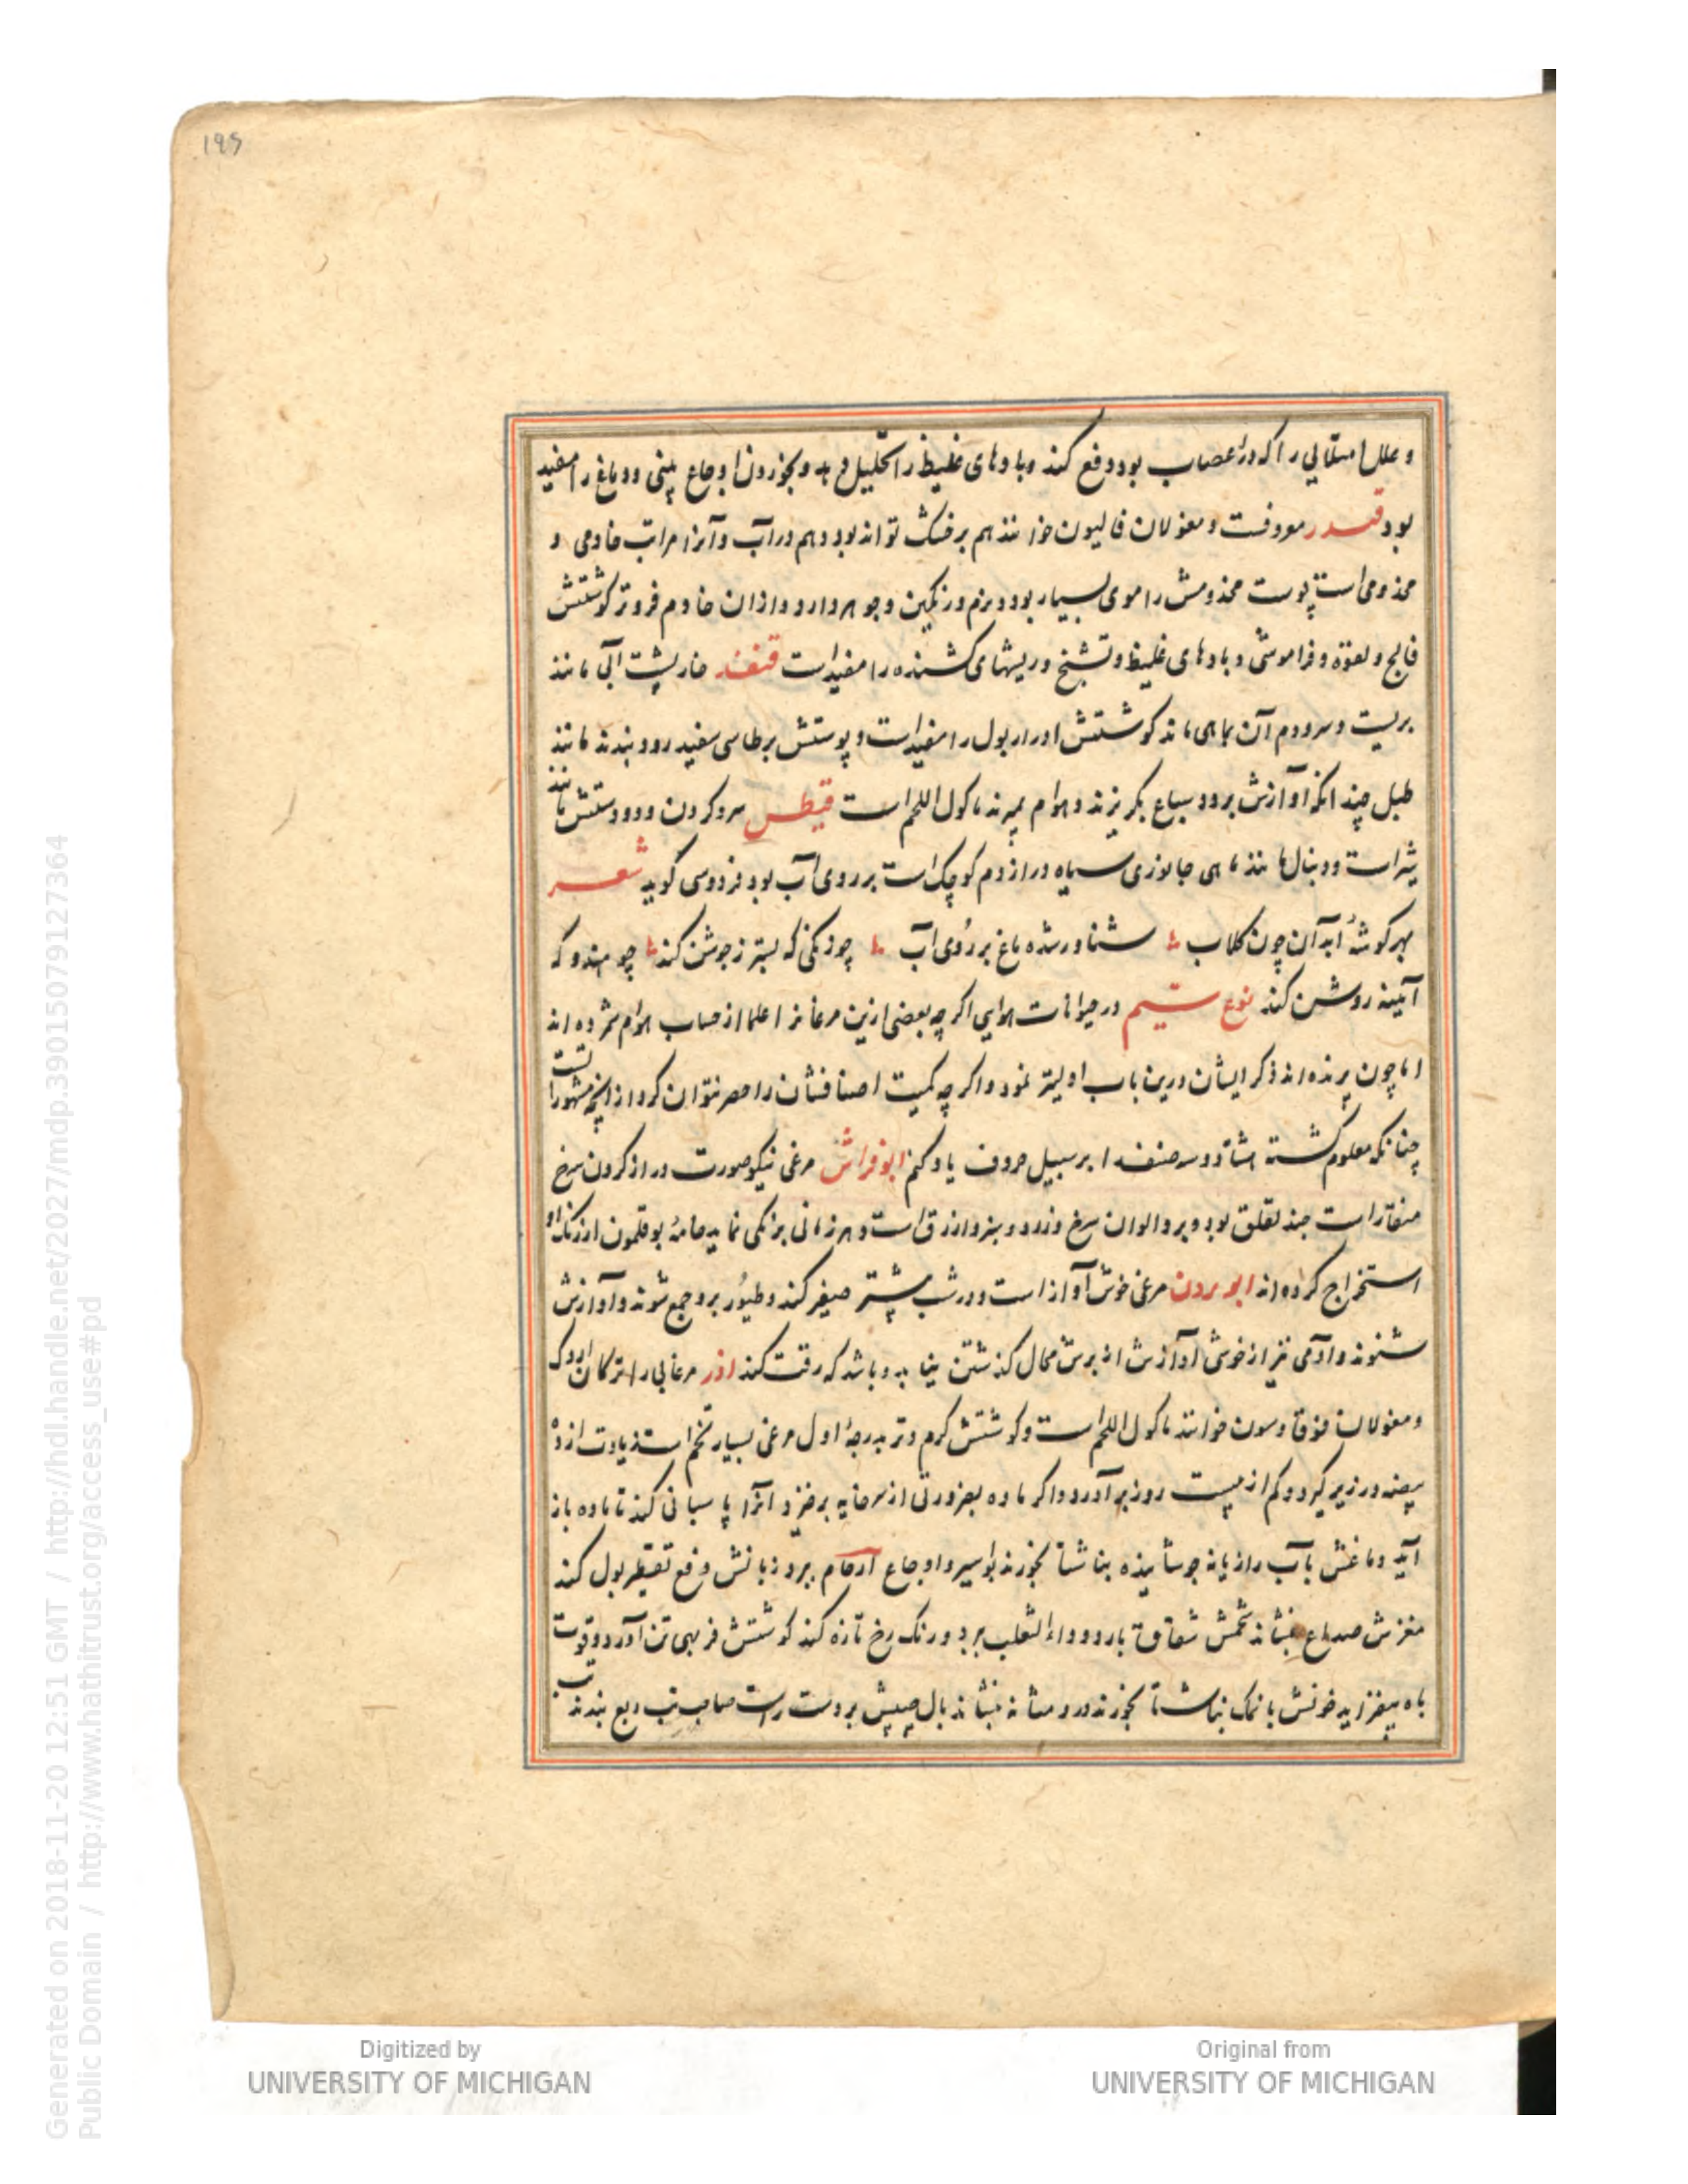 195
و علل امتلائی را که در اعصاب بود دفع کند و بادهای غلیظ را تحلیل دهد و بخوردن اوجاع بینی و دماغ را مفید
بود قندر معروفست و مغولان قالیون خوانند هم بر خشک تواند بود و هم در آب و آنرا مراتب خادمی و
مخدومی است پوست مخدومش را موی بسیار بود و نرم و رنگین و جوهردار و از ان خادم فروتر گوشتش
فالج و لقوة و فراموشی و بادهای غلیظ و تشنج و ریشهای کشنده را مفید است قنفند خارپشت آبی مانند
بریست و سر و دم آن بماهی ماند گوشتش ادرار بول را مفید است و پوستش برطاسی سفید رود بندند مانند
طبل چندانکه آوازش برود سباع بگریزند و هوام بمیرند ماکول اللحم است قیطس سر و گردن و دو دستش مانند
شیر است و دنبال مانند ماهی جانوری سیاه دراز دم کوچک است بر روی آب بود فردوسی گوید شعر
بهر گوشهٔ آبدان چون گلاب شناور شده ماغ بر روی آب چو زنگی که بستر ز جوشن کند چو هندو که
آیینه روشن کند نوع سیم در حیوانات هوایی اگرچه بعضی ازین مرغانرا علما از حساب هوام شمرده اند
اما چون پرنده اند ذکر ایشان درین باب اولیتر نمود و اگرچه کمیت اصنافشان را حصر نتوان کرد از انچه مشهور است
چنانکه معلوم گشته هشتاد و سه صنف را بر سبیل حروف یاد کنم ابوفراش مرغی نیکو صورت دراز گردن سرخ
منقار است چند لقلق بود و بر و الوان سرخ و زرد و سبز و ازرق است و هر زمانی برنگی نماید جامهٔ بوقلمون از رنگ او
استخراج کرده اند ابو بردن مرغی خوش آواز است و در شب بیشتر صفیر کند و طیور برو جمع شوند و آوازش
شنوند و آدمی نیز از خوشی آوازش از برش مجال گذشتن نیابد و باشد که رقت کند اذر مرغابی را ترکان اردک
و مغولان خوانند ماکول اللحم است و گوشتش گرم و تر بدرجهٔ اول مرغی بسیار تخم است زیادت از ده
بیضه در زیر گیرد و کم از بیست روز بر آورد و اگر ماده بضرورتی از سر خایه برخیزد نر آنرا پاسبانی کند تا ماده باز
آید دماغش بآب رازیانه جوشانیده بناشتا بخورند بواسیر و اوجاع ارحام ببرد زبانش دفع تقطیر بول کند
مغزش صداع بنشاند شحمش شقاق بارد و داء الثعلب ببرد و رنگ رخ تازه کند گوشتش فربهی تن آورد و قوت
باه بیفزاید خونش با نمک بناشتا بخورند درد مثانه بنشاند بال چپش بر دست راست صاحب تب ربع بندند تب
Generated on 2018-11-20 12:51 GMT / http://hdl.handle.net/2027/mdp.39015079127364
Public Domain / http://www.hathitrust.org/access_use#pd
Digitized by
UNIVERSITY OF MICHIGAN
Original from
UNIVERSITY OF MICHIGAN